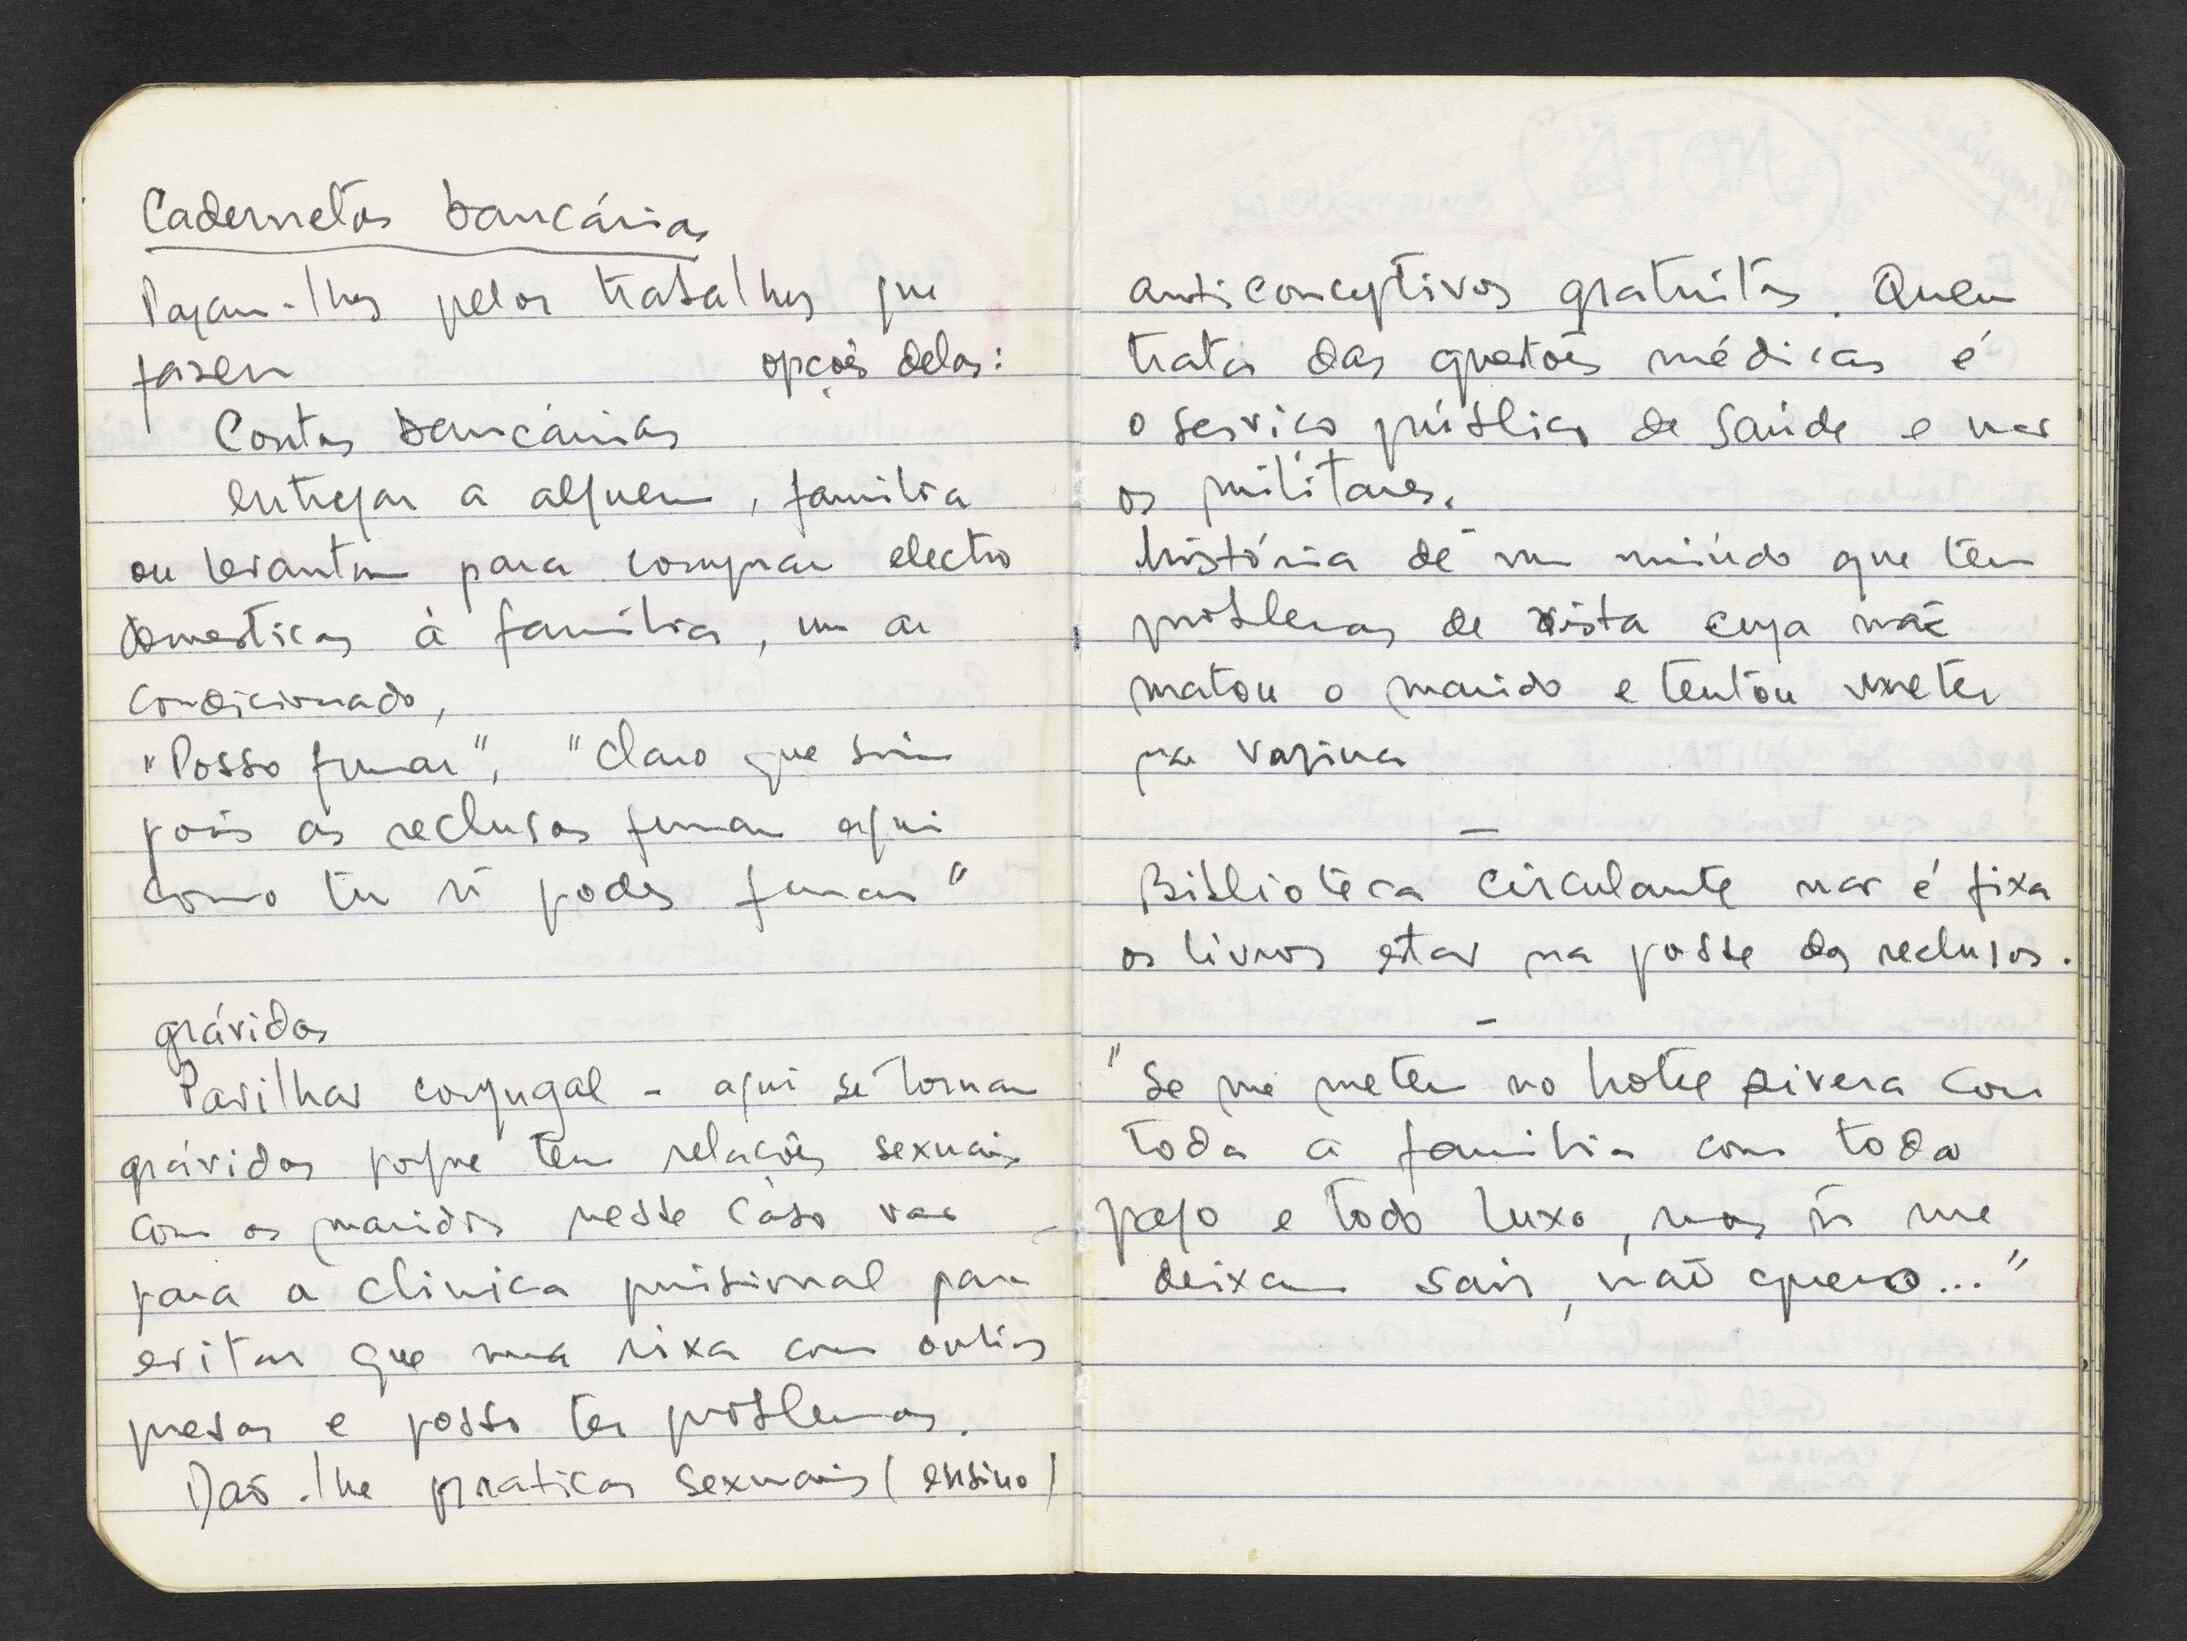 Cadernetas bancárias
Pagam-lhes pelos trabalhos que
fazem opções delas:
Contas bancárias
entregar a alguem, família
ou levantam para comprar electro
domesticos à família, um ar
condicionado,
"Posso fumar", "claro que sim
pois as reclusas fumam aqui
como tu ñ podes fumar"
grávidas
Pavilhão conjugal - aqui se tornam
grávidas porque tem relações sexuais
com os maridos nesse caso vão
para a clinica prisional para
evitar que uma rixa com outras
presas e possa ter problemas.
Dão-lhe praticas sexuais (ensino)
anticonceptivos gratuitos. Quem
trata das questões médicas é
o serviço público de saúde e não
os militares.
história de um miúdo que tem
problemas de vista cuja mãe
matou o marido e tentou meter
na vagina
—
Biblioteca circulante não é fixa
os livros estão na posse dos reclusos.
—
"Se me metem no hotel Rivera com
toda a familia com todo
pago e todo luxo, mas ñ me
deixam sair, não quero..."